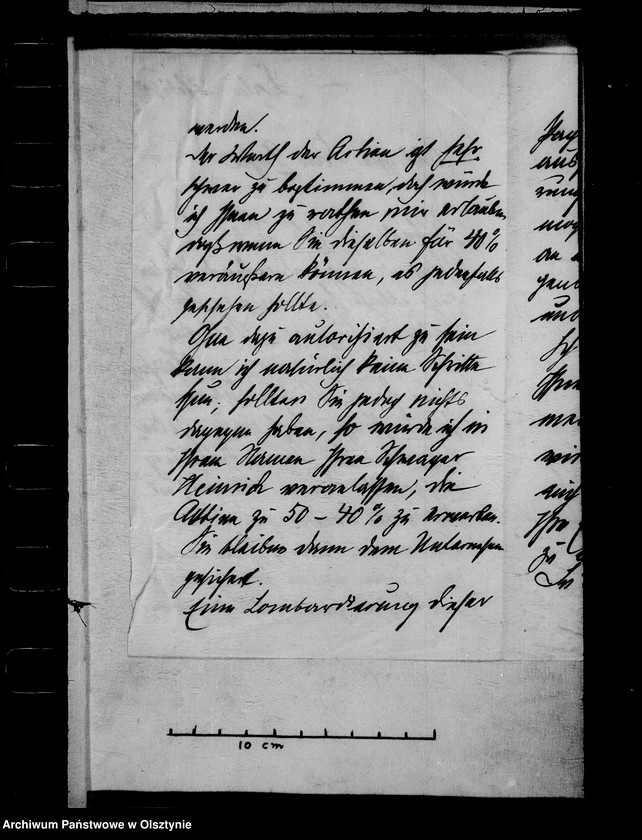 werden.
Der Werth der Actien ist sehr
schwer zu bestimmen, doch würde
ich Ihnen zu rathen mir erlauben
daß wenn Sie dieselben für 40%
veräußern können, es jedenfalls
geschehen sollte.
Ohne dazu autorisiert zu sein
kann ich natürlich keine Schritte
thun; sollten Sie jedoch nichts
dagegen haben, so würde ich in
Ihrem Namen Ihren Schwager
Heinrich veranlassen, die
Aktien zu 50 – 40% zu erwerben.
Sie bleiben dann dem Unternehmen
gesichert.
Eine Lombardierung dieser
aus
an
und
10 cm
Archiwum Państwowe w Olsztynie